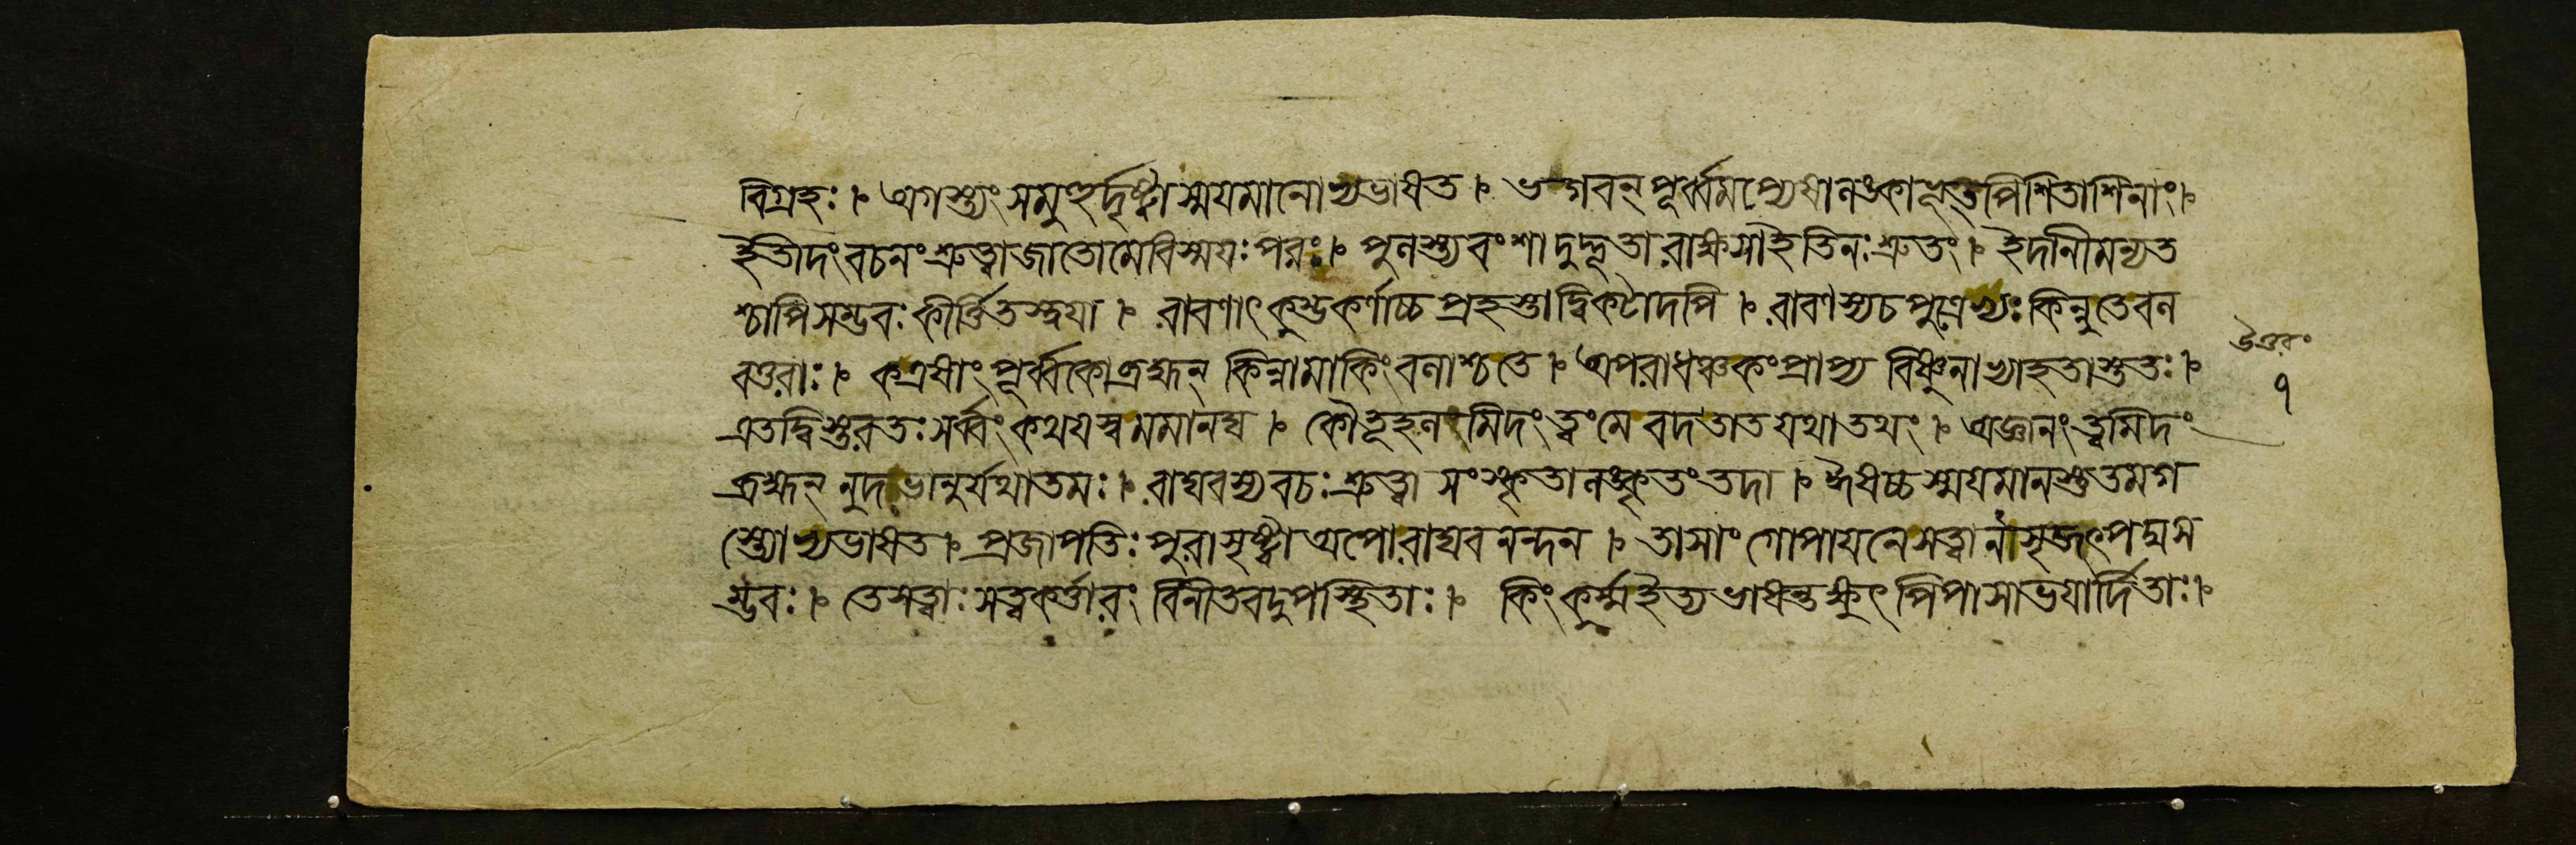 বিগ্রহঃ। অগস্ত্যং সমুহুর্দৃষ্ট্বা স্ময়মানো ভ্যভাষত। ভগবন্ পূর্ব্বমপ্যেষা লঙ্কাভূৎ পিশিতাশিনাং।
ইতীদং বচনং শ্রুত্বা জাতো মে বিস্ময়ঃ পরঃ। পুলস্ত্যবংশাদুদ্ভূতা রাক্ষসা ইতি নঃ শ্রুতং। ইদানীমন্যত
শ্চাপি সম্ভবঃ কীর্ত্তিতস্ত্বয়া। রাবণাৎ কুম্ভকর্ণাচ্চ প্রহস্তাদ্বিকটাদপি। রাবণস্য চ পুত্রেভ্যঃ কিন্নু তে বল
বত্তরাঃ। ক এষাং পূর্ব্বকো ব্রহ্মন্ কিন্নামা কিংবলাশ্চ তে। অপরাধঞ্চ কং প্রাপ্য বিষ্ণুনা ভ্যাহতাস্তুতঃ।
এতদ্বিস্তরতঃ সর্ব্বং কথয়স্ব মমানঘ। কৌতূহলমিদং ত্বং মে বদ তাত যথাতথং। অজ্ঞানং ত্বমিদং
ব্রহ্মন্ নুদ ভানুর্যথা তমঃ। রাঘবস্য বচঃ শ্রুত্বা সংস্কৃতালঙ্কৃতং তদা। ঈষচ্চ স্ময়মানস্তু তমগ
স্ত্যো ভ্যভাষত। প্রজাপতিঃ পুরা সৃষ্ট্বা অপো রাঘবনন্দন। তাসাং গোপায়নে সত্বানসৃজৎ পদ্মস
ম্ভবঃ। তে সত্বাঃ সত্বকর্ত্তারং বিনীতবদুপস্থিতাঃ। কিং কুর্ম্ম ইত্যভাষন্ত ক্ষুৎপিপাসাভয়ার্দিতাঃ।
উত্তরং
৭